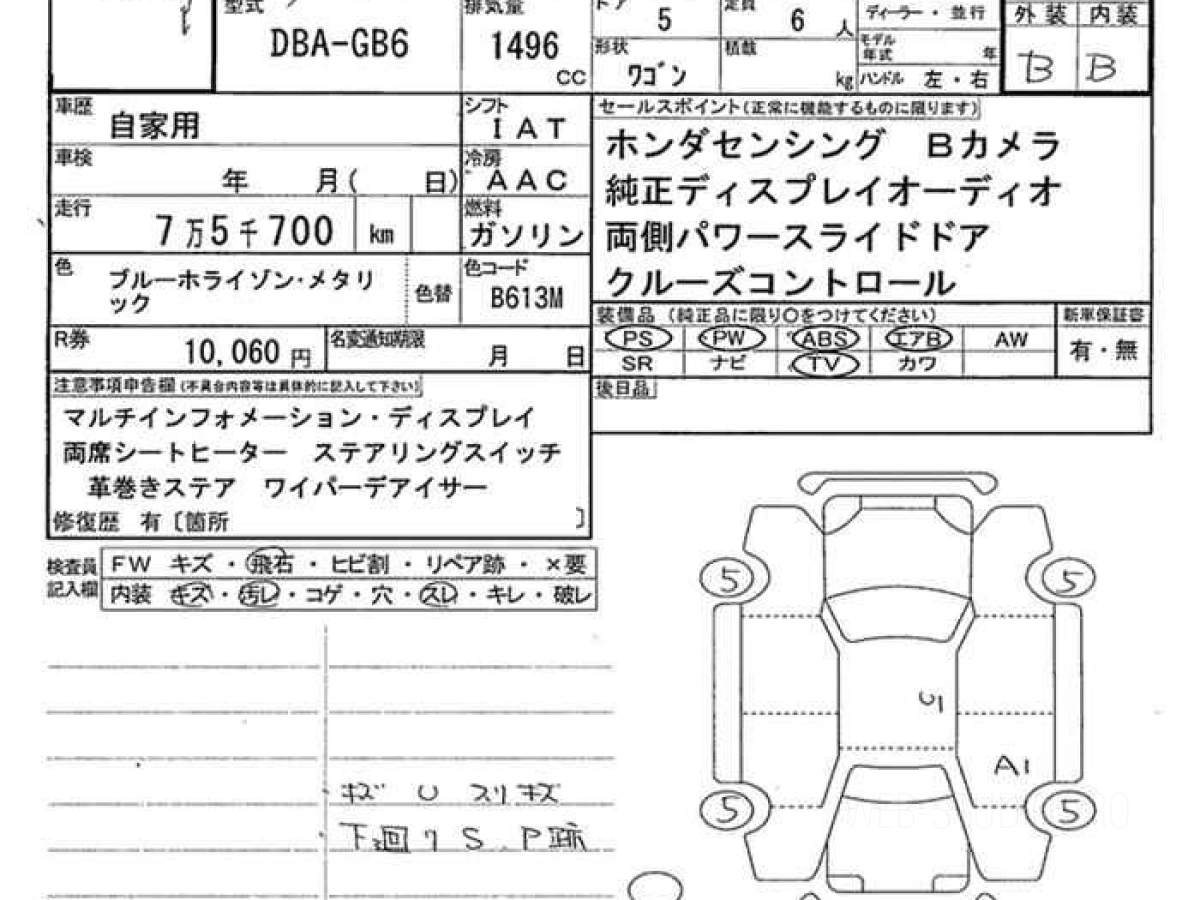 型式
DBA-GB6
排気量
1496
CC
ドア
5
定員
6
人
形状
ワゴン
積載
kg
ディーラー・並行
モデル年式
年
ハンドル 左・右
外装 内装
B B
車歴
自家用
シフト
IAT
車検
年 月( 日)
冷房
AAC
走行
7万5千700 km
燃料
ガソリン
色
ブルーホライゾン・メタリ
ック
色替
色コード
B613M
R券
10,060円
名変通知期限
月 日
セールスポイント(正常に機能するものに限ります)
ホンダセンシング Bカメラ
純正ディスプレイオーディオ
両側パワースライドドア
クルーズコントロール
装備品 (純正品に限り〇をつけてください)
新車保証書
PS PW ABS エアB AW
SR ナビ TV カワ
有・無
後日品
注意事項申告欄(不具合内容等は具体的に記入して下さい)
マルチインフォメーション・ディスプレイ
両席シートヒーター ステアリングスイッチ
革巻きステア ワイパーデアイサー
修復歴 有〔箇所 〕
検査員
記入欄
FW キズ・飛石・ヒビ割・リペア跡・×要
内装 キズ・汚レ・コゲ・穴・スレ・キレ・破レ
5
5
U1
A1
5
5
キズ U スリキズ
下廻り S、P跡